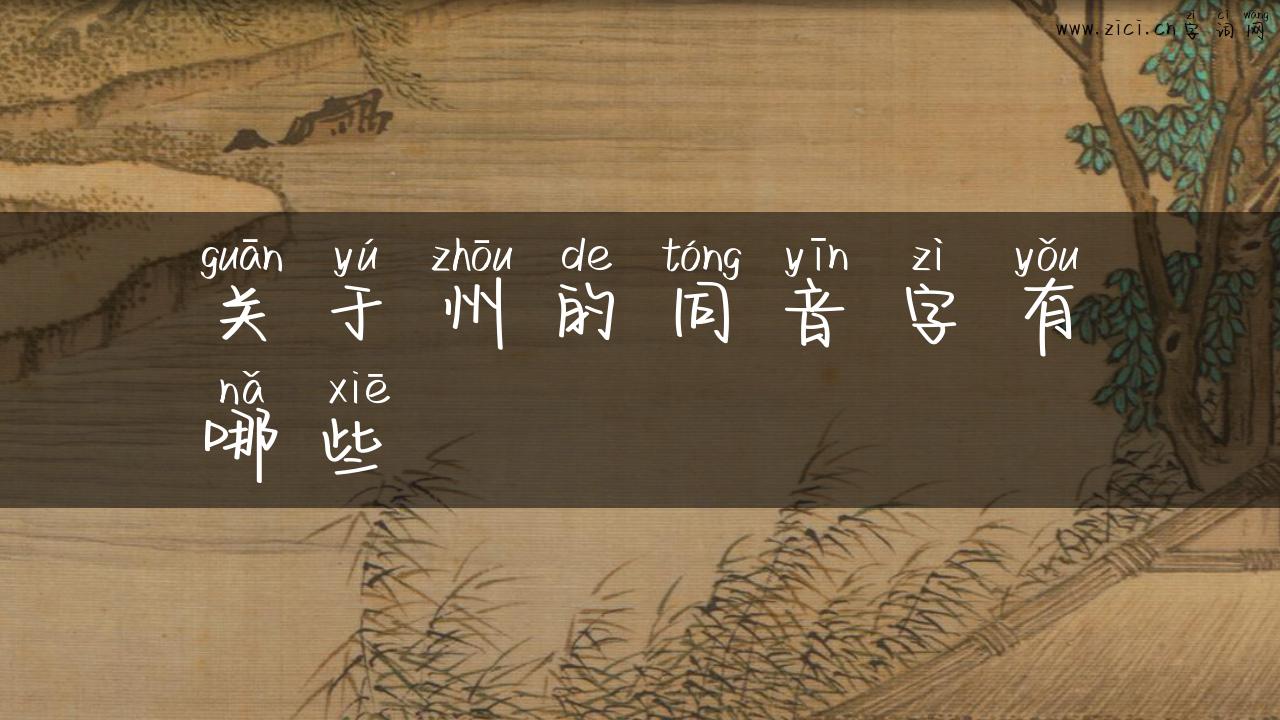 zì cí wǎng
www.zici.cn字词网
guān yú zhōu de tóng yīn zì yǒu
关于州的同音字有
nǎ xiē
哪些